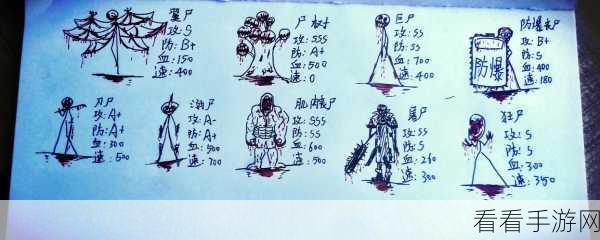 翼尸
攻:S
防:B+
血:150
速:400
尸树
攻:SSS
防:A+
血:500
速:0
巨尸
攻:SS
防:SS
血:700
速:400
防爆
防爆丧尸
攻:B+
防:S
血:400
速:180
刀尸
攻:A+
防:A+
血:300
速:500
攻:A-
防:A+
血:500
速:700
肌肉丧尸
攻:SSS
防:SS
血:600
速:500
屠尸
攻:SS
防:SS
血:260
速:300
狂尸
攻:S
防:S
血:300
速:350
看看手游网